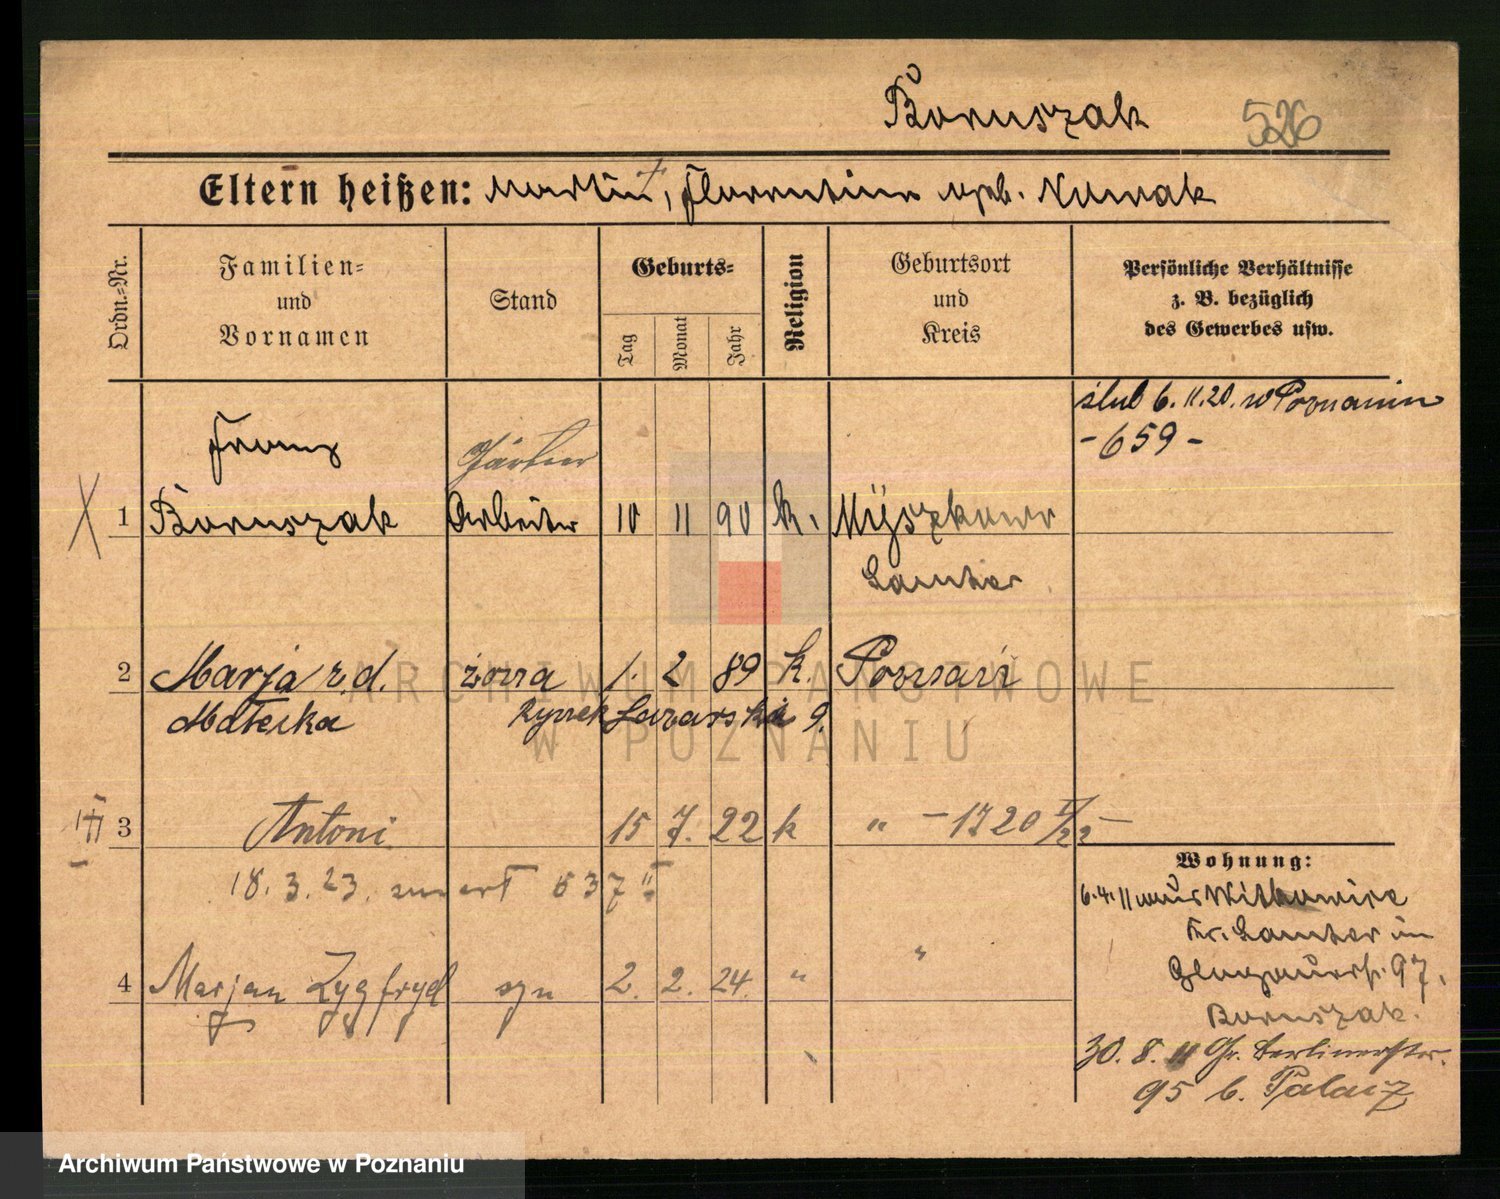 Boruszak 526
Eltern heißen: Martin †, Florentine geb. Nowak
Ordn.=Nr.
Familien=
und
Vornamen
Stand
Geburts=
Tag
Monat
Jahr
Religion
Geburtsort
und
Kreis
Persönliche Verhältnisse
z. B. bezüglich
des Gewerbes usw.
ślub 6.11.20. w Poznaniu
- 659 -
Franz Gärtner
1 Boruszak Arbeiter 10 11 90 k. Myszkowo
Samter
2 Marja z.d. żona 1. 2 89 k. Poznań
Matecka Rynek Łazarski 9.
3 Antoni 15 7. 22 k " - 1720 I/22 -
18.3.23. zmarł 537 II
4 Marjan Zygfryd syn 2. 2. 24. " "
Wohnung:
6.4.11 aus
Kr. Samter in
Glogauerstr. 97.
Boruszak.
30.8.11 Gr. Berlinerstr.
95 b. Palacz
ARCHIWUM PAŃSTWOWE
W POZNANIU
Archiwum Państwowe w Poznaniu